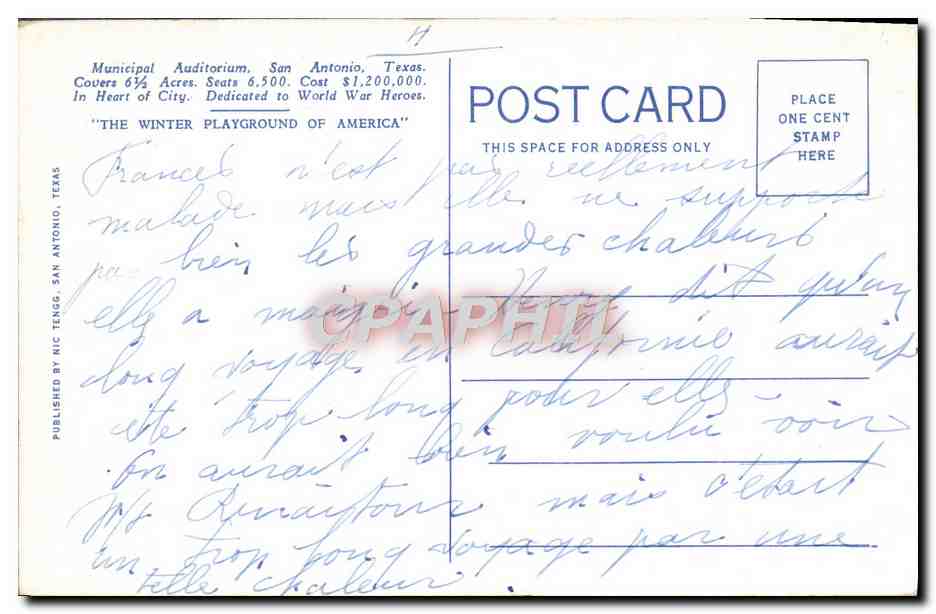 H
Municipal Auditorium, San Antonio, Texas.
Covers 6½ Acres. Seats 6,500. Cost $1,200,000.
In Heart of City. Dedicated to World War Heroes.
"THE WINTER PLAYGROUND OF AMERICA"
POST CARD
THIS SPACE FOR ADDRESS ONLY
PLACE
ONE CENT
STAMP
HERE
PUBLISHED BY NIC TENGG, SAN ANTONIO, TEXAS
Frances n'est pas reellement
malade mais elle ne supporte
pas bien les grandes chaleurs
elle a maigri - Henry dit qu'un
long voyage en Californie aurait
été trop long pour elle -
On aurait bien voulu voir
mais c'était
un trop long voyage par une
telle chaleur.
CPAPHIL